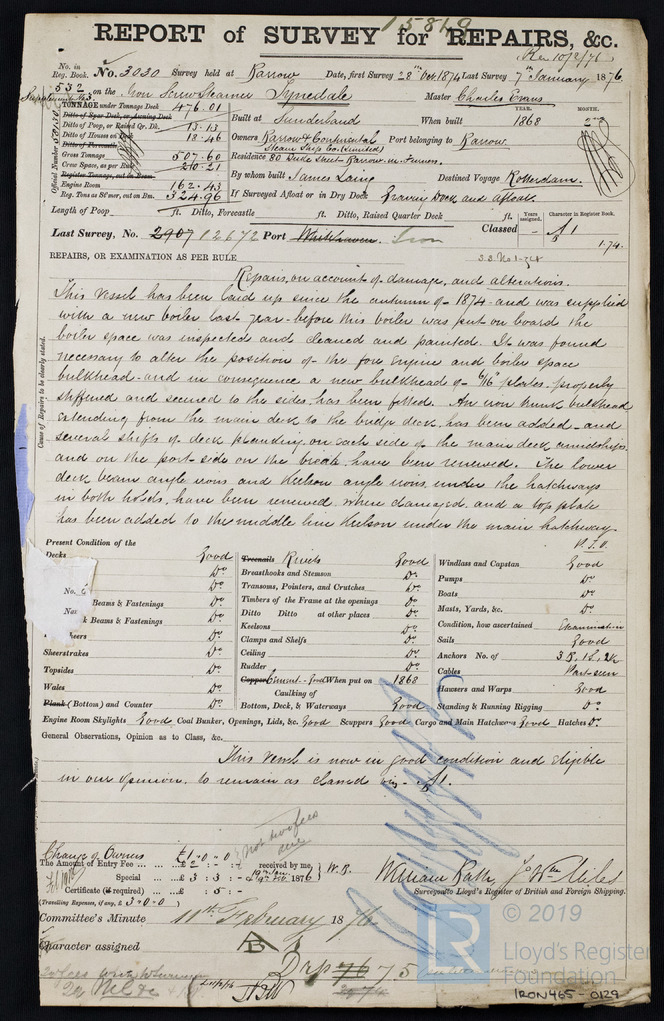 15819
REPORT of SURVEY for REPAIRS, &c.
Rec 10/2/76
No. in Reg. Book. No. 3030 Survey held at Barrow Date, first Survey 28th Oct 1874 Last Survey 7th January 1876.
532 on the Iron Screw Steamer Tynedale Master Charles Evans
TONNAGE under Tonnage Deck 476.01
Ditto of Spar Deck, or Awning Deck
Ditto of Poop, or Raised Qr. Dk. 13.13
Ditto of Houses on Deck 18.46
Ditto of Forecastle
Gross Tonnage 507.60
Crew Space, as per Rule 20.21
Register Tonnage, out on Beam
Engine Room 162.43
Reg. Tons as St'mer, cut on Bm. 324.96
Official Number
Built at Sunderland When built 1868
YEAR. MONTH.
Owners Barrow & Continental Steam Ship Co. (Limited) Port belonging to Barrow.
Residence 80 Duke Street Barrow-in-Furness.
By whom built James Laing Destined Voyage Rotterdam.
If Surveyed Afloat or in Dry Dock Graving Dock and afloat.
Length of Poop ft. Ditto, Forecastle ft. Ditto, Raised Quarter Deck ft.
Years assigned. Character in Register Book.
Last Survey, No. 2907 12672 Port Whitehaven. Iron Classed - A1
1.74.
REPAIRS, OR EXAMINATION AS PER RULE
S.S. No 1-74
Cause of Repairs to be clearly stated.
Repairs, on account of damage, and alterations.
This vessel has been laid up since the autumn of 1874 and was supplied
with a new boiler last year - before this boiler was put on board the
boiler space was inspected and cleaned and painted. It was found
necessary to alter the position of the fore Engine and boiler space
bulkhead - and in consequence a new bulkhead of 6/16 plates, properly
stiffened and secured to the sides has been fitted. An iron trunk bulkhead
extending from the main deck to the bridge deck, has been added - and
several shifts of deck planking on each side of the main deck amidships
and on the port side on the break have been renewed. The lower
deck beam angle irons and Keelson angle irons under the hatchways
in both holds, have been renewed where damaged, and a top plate
has been added to the middle line Keelson under the main hatchway.
P.T.O.
Present Condition of the
Decks Good
Do
No. 6 Do
Beams & Fastenings Do
k Beams & Fastenings Do
eers Do
Sheerstrakes Do
Topsides Do
Wales Do
Plank (Bottom) and Counter Do
Treenails Rivets Good
Breasthooks and Stemson Do
Transoms, Pointers, and Crutches Do
Timbers of the Frame at the openings Do
Ditto Ditto at other places Do
Keelsons Do
Clamps and Shelfs Do
Ceiling Do
Rudder Do
Copper Cement - good (When put on 1868
Caulking of
Bottom, Deck, & Waterways Good
Windlass and Capstan Good
Pumps Do
Boats Do
Masts, Yards, &c. Do
Condition, how ascertained Examination
Sails Good
Anchors No. of 3 B, 1 S, 2 K
Cables Part seen
Hawsers and Warps Good
Standing & Running Rigging Do
Engine Room Skylights Good Coal Bunker, Openings, Lids, &c. Good Scuppers Good Cargo and Main Hatchways Good Hatches Do
General Observations, Opinion as to Class, &c.
This Vessel is now in good condition and eligible
in our opinion, to remain as classed viz - A1.
Change of Owners £1 - 0 - 0
The Amount of Entry Fee ... £2 : - : -
Special ... £ 3 : 3 : -
Certificate (if required) ... £ : 5 : -
(Travelling Expenses, if any, £ 3-0-0)
not two fees due
received by me,
1876
W.B.
William Bath Jo Wm Miles
Surveyors to Lloyd's Register of British and Foreign Shipping.
Committee's Minute 11th February 1876
Character assigned A
B
1
Drp 76 75
© 2019
Lloyd's Register
Foundation
IRON465-0129